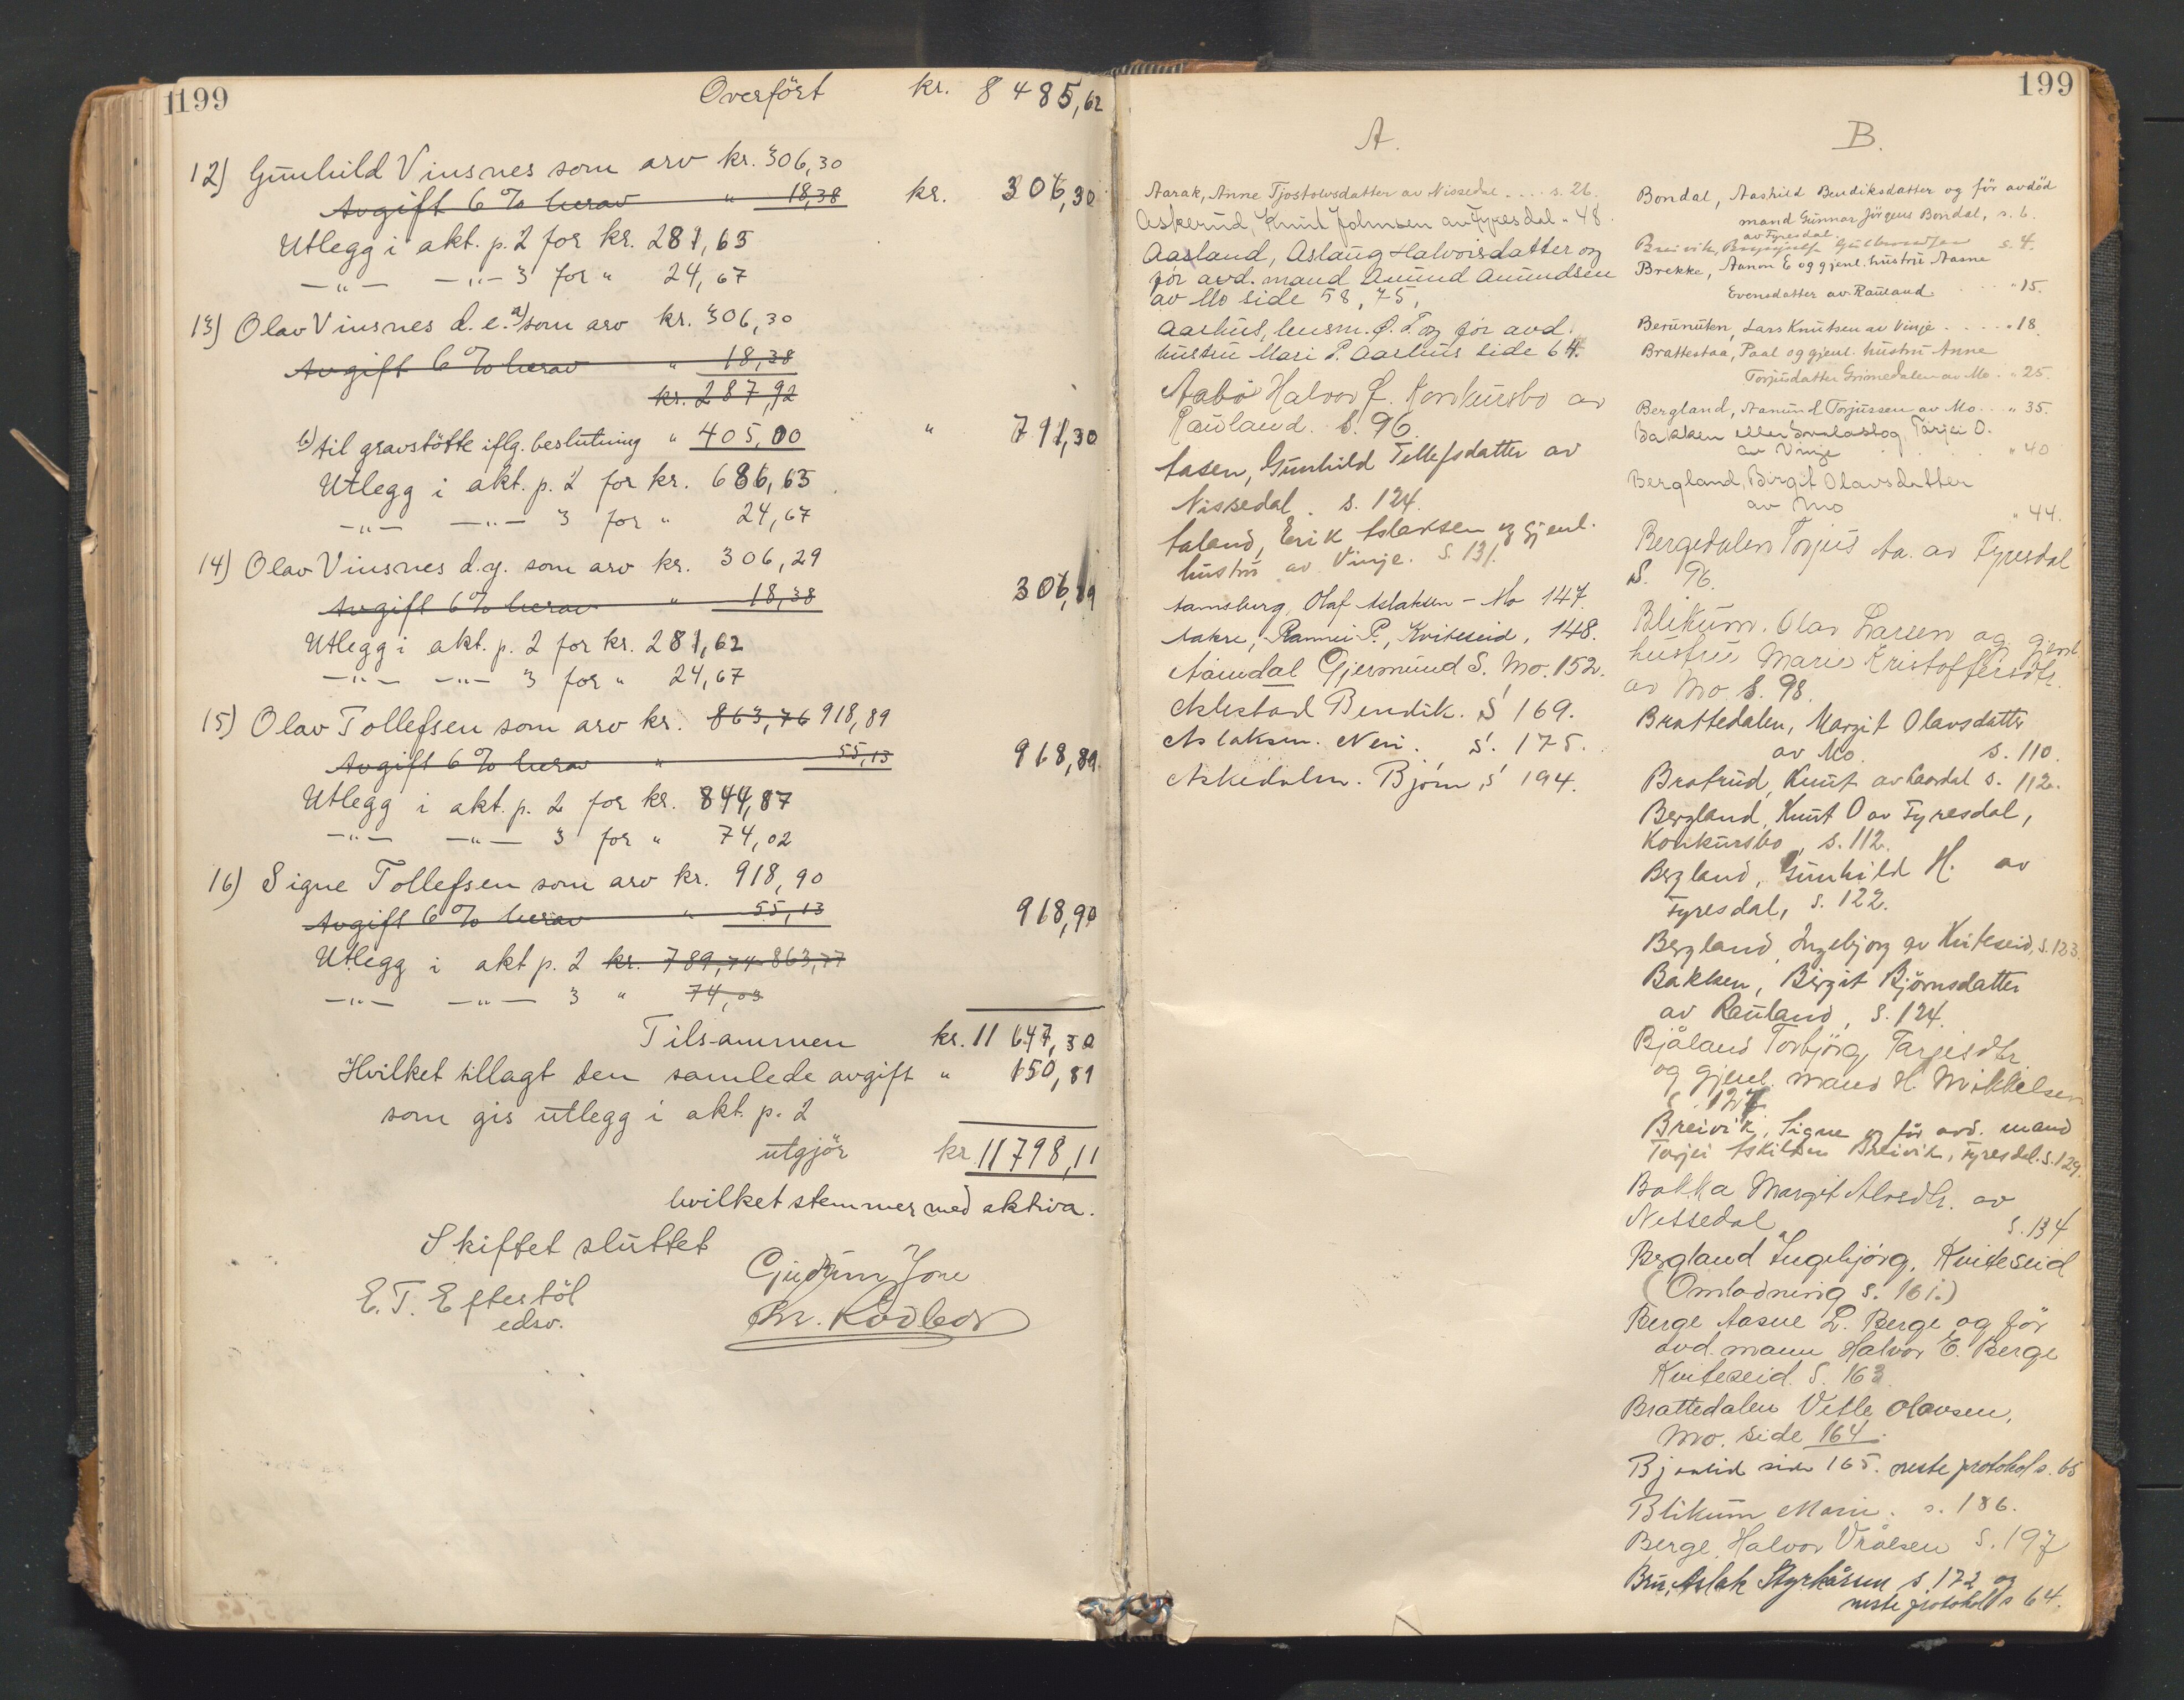 199
Overført kr. 8485,62
12) Gunhild Vinsnes som arv kr. 306,30
Avgift 6% herav " 18,38 kr. 306,30
Utlegg i akt. p. 2 for kr. 281,63
—"— —"— 3 for " 24,67
13) Olav Vinsnes d. e. a) som arv kr. 306,30
Avgift 6% herav " 18,38
kr. 287,92
b) til gravstøtte iflg. beslutning " 405,00 " 711,30
Utlegg i akt. p. 2 for kr. 686,63
—"— —"— 3 for " 24,67
14) Olav Vinsnes d.y. som arv kr. 306,29
Avgift 6% herav " 18,38 306,29
Utlegg i akt. p. 2 for kr. 281,62
—"— —"— 3 for " 24,67
15) Olav Tollefsen som arv kr. 863,76 918,89
Avgift 6% herav " 55,13 918,89
Utlegg i akt. p. 2 for kr. 844,87
—"— —"— 3 for " 74,02
16) Signe Tollefsen som arv kr. 918,90
Avgift 6% herav " 55,13 918,90
Utlegg i akt p. 2 kr. 789,74 863,77
—"— —"— 3 " 74,03
Tilsammen kr. 11 647,30
Hvilket tillagt den samlede avgift " 150,81
som gis utlegg i akt. p. 2
utgjør kr 11798,11
hvilket stemmer med aktiva.
Skiftet sluttet
E. T. Eftestøl
edsv.
199
A.
Aarak, Anne Tjostolvsdatter av Nissedal .... s. 26.
Askerud, Knut Johnsen av Fyresdal " 48.
Aasland, Aslaug Halvorsdatter og
for avd. mand Amund Amundsen
av Mo side 58, 75,
Aashus, lensm. O. T. og for avd.
hustru Mari P. Aashus side 64.
Aabø Halvor Konkursbo av
Rauland. S. 96.
Aasen, Gunhild Tellefsdatter av
Nissedal. s. 124.
Aaland, Erik Aslaksen og gjenl.
hustru av Vinje. S. 131.
Aamsberg, Olaf Aslaksen – Mo 147.
Aakre, Rannei P., Kviteseid, 148.
Aamdal Gjermund S. Mo. 152.
Bendik. S 169.
Aslaksen. Neri. S. 175.
Askedalen. Bjørn, S 194.
B.
Bondal, Aashild Bendiksdatter og før avdød
mand Gunnar Jørgens Bondal, s. 6.
av Fyresdal.
Breivik, s. 4.
Brekke, Aanon E og gjenl. hustru Aasne
Evensdatter av Rauland. " 15.
Berunuten, Lars Knutsen av Vinje ..... " 18.
Brattestaa, Paal og gjenl. hustru Anne
Torjusdatter Grimedalen av Mo. " 25.
Bergland, Aanund Torjussen av Mo. .. " 35.
Bakken eller Tarjei O.
av Vinje " 40
Bergland, Birgit Olavsdatter
av Mo " 44.
Bergedalen Torjus Aa. av Fyresdal
S. 96.
Blikum. Olav Larsen og gjenl
hustru Marie Kristoffersdtr.
av Mo S. 98.
Brattedalen, Margit Olavsdatter
av Mo. s. 110.
Bratrud, Knut av Laardal s. 112.
Bergland, Knut O av Fyresdal,
Konkursbo, s. 112.
Bergland, Gunhild H. av
Fyresdal, s. 122.
Bergland, Ingebjørg av Kviteseid, s. 123.
Bakken, Birgit Bjørnsdatter
av Rauland, s. 124.
Bjåland Torbjørg Tarjeisdtr.
og gjenl. mand H. Mikkelsen
S. 127
Breivik, Signe og før avd. mand
Tarjei Askildsen Breivik, Fyresdal. S. 129.
Bakka Margit Alvsdtr. av
Nissedal s. 134
Bergland Ingebjørg, Kviteseid
(Omlodning s. 161.)
Berge Aasne L. Berge og før
avd. mann Halvor E. Berge
Kviteseid. S. 163.
Brattedalen Vetle Olavsen,
Mo. side 164.
side 165. neste protokol s. 65
Blikum Marie. s. 186.
Berge, Halvor Vråisen S. 197
Bru, Aslak Styrkårsen s. 172 og
neste protokoll s 64.